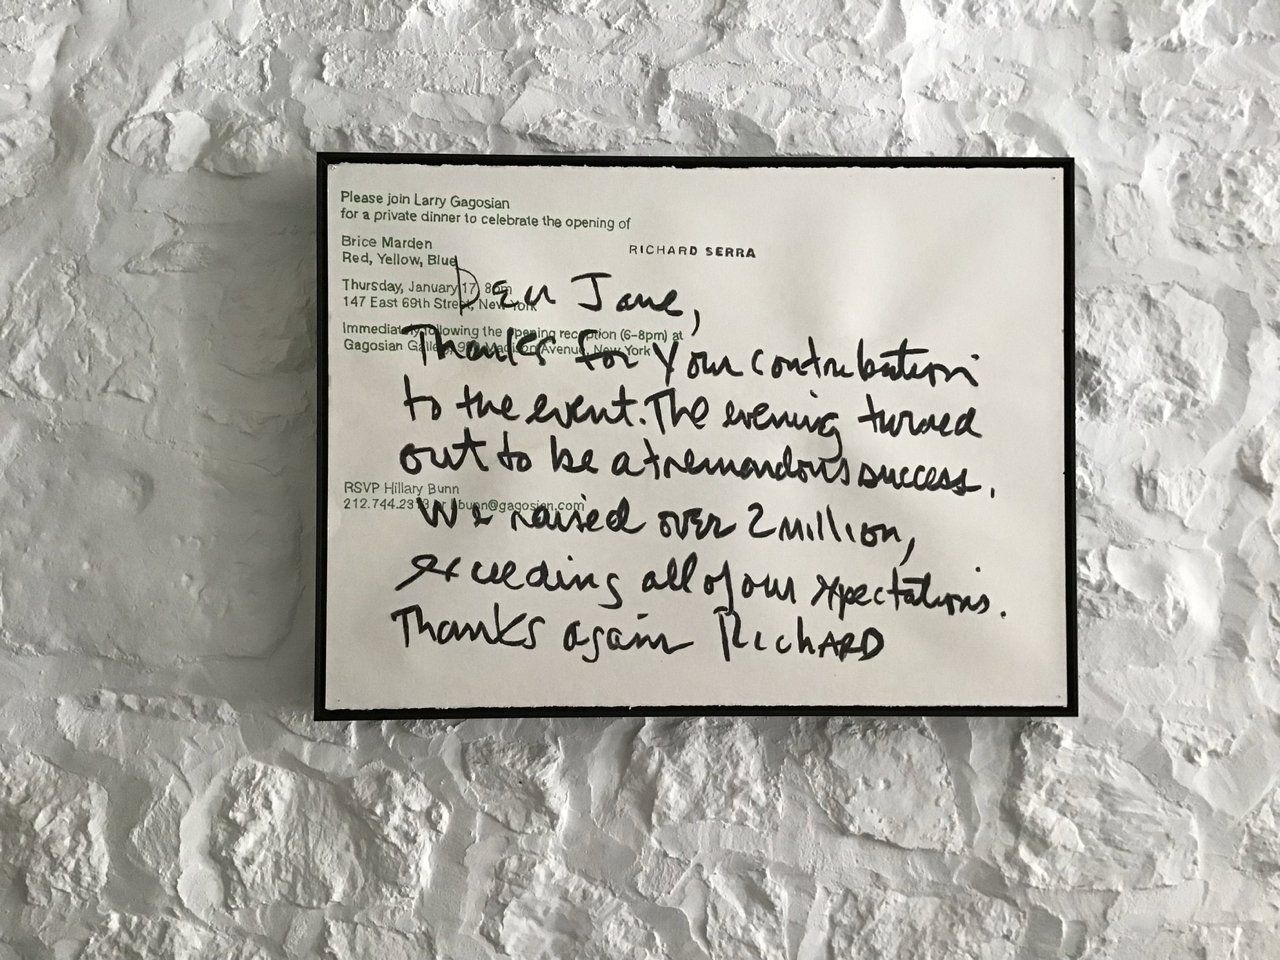 Please join Larry Gagosian
for a private dinner to celebrate the opening of
Brice Marden
Red, Yellow, Blue
RICHARD SERRA
Thursday, January 17, 8pm
147 East 69th Street, New York
Immediately following the opening reception (6–8pm) at
Gagosian Gallery, Madison Avenue, New York
RSVP Hillary Bunn
212.744. or hbunn@gagosian.com
Dear Jane,
Thanks for Your contribution
to the event. The evening turned
out to be a tremondous success.
We raised over 2 million,
exceeding all of our expectations.
Thanks again RichARD